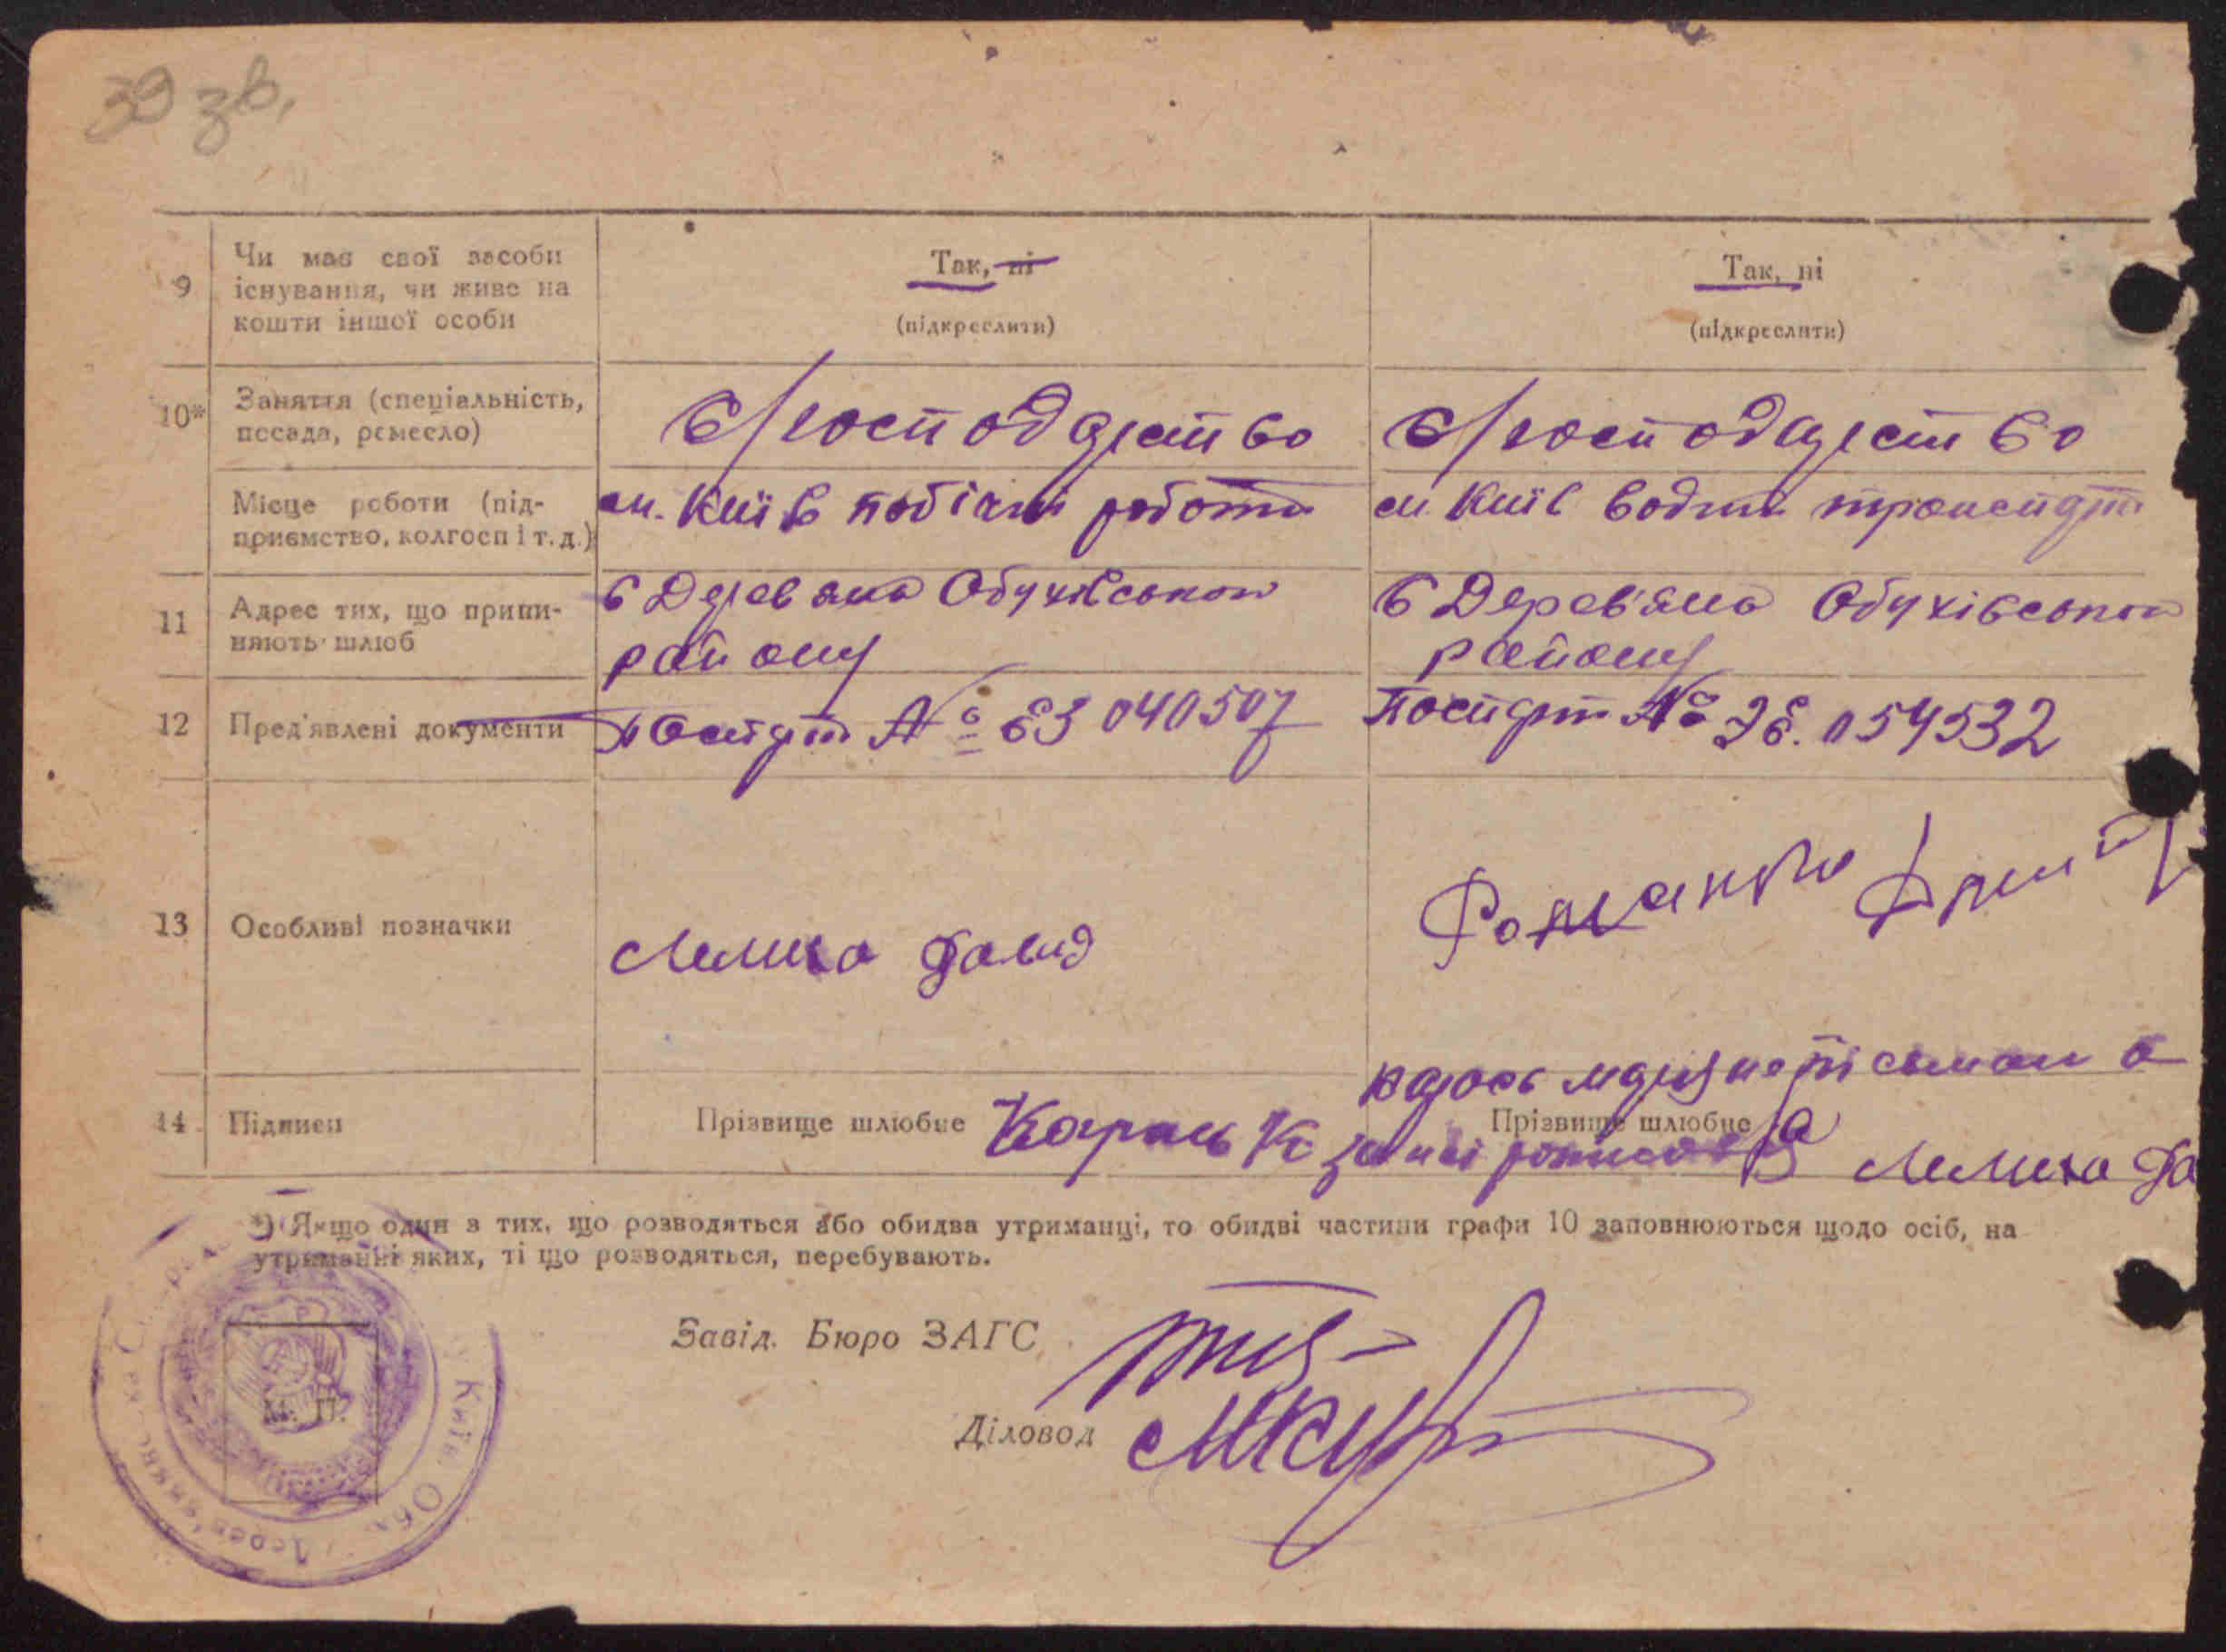 39 зв.
9
Чи має свої засоби
існування, чи живе на
кошти іншої особи
Так, ні
(підкреслити)
Так, ні
(підкреслити)
10*
Заняття (спеціальність,
посада, ремесло)
с/господарство
с/господарство
Місце роботи (під-
приємство, колгосп і т. д.)
м. Київ побічні робота
м. Київ водни транспорт
11
Адрес тих, що припи-
няють шлюб
с Деревяна Обухівського
району
с Дерев'яна Обухівського
району
12
Пред'явлені документи
Паспорт № 040507
Паспорт № 054532
13
Особливі позначки
Лемеха Давид
Романенко
14
Підписи
Прізвище шлюбне Карась
Прізвище шлюбне
Лемеха Да
*) Якщо один з тих, що розводяться або обидва утриманці, то обидві частини графи 10 заповнюються щодо осіб, на
утриманні яких, ті що розводяться, перебувають.
Завід. Бюро ЗАГС
Діловод
М. П.